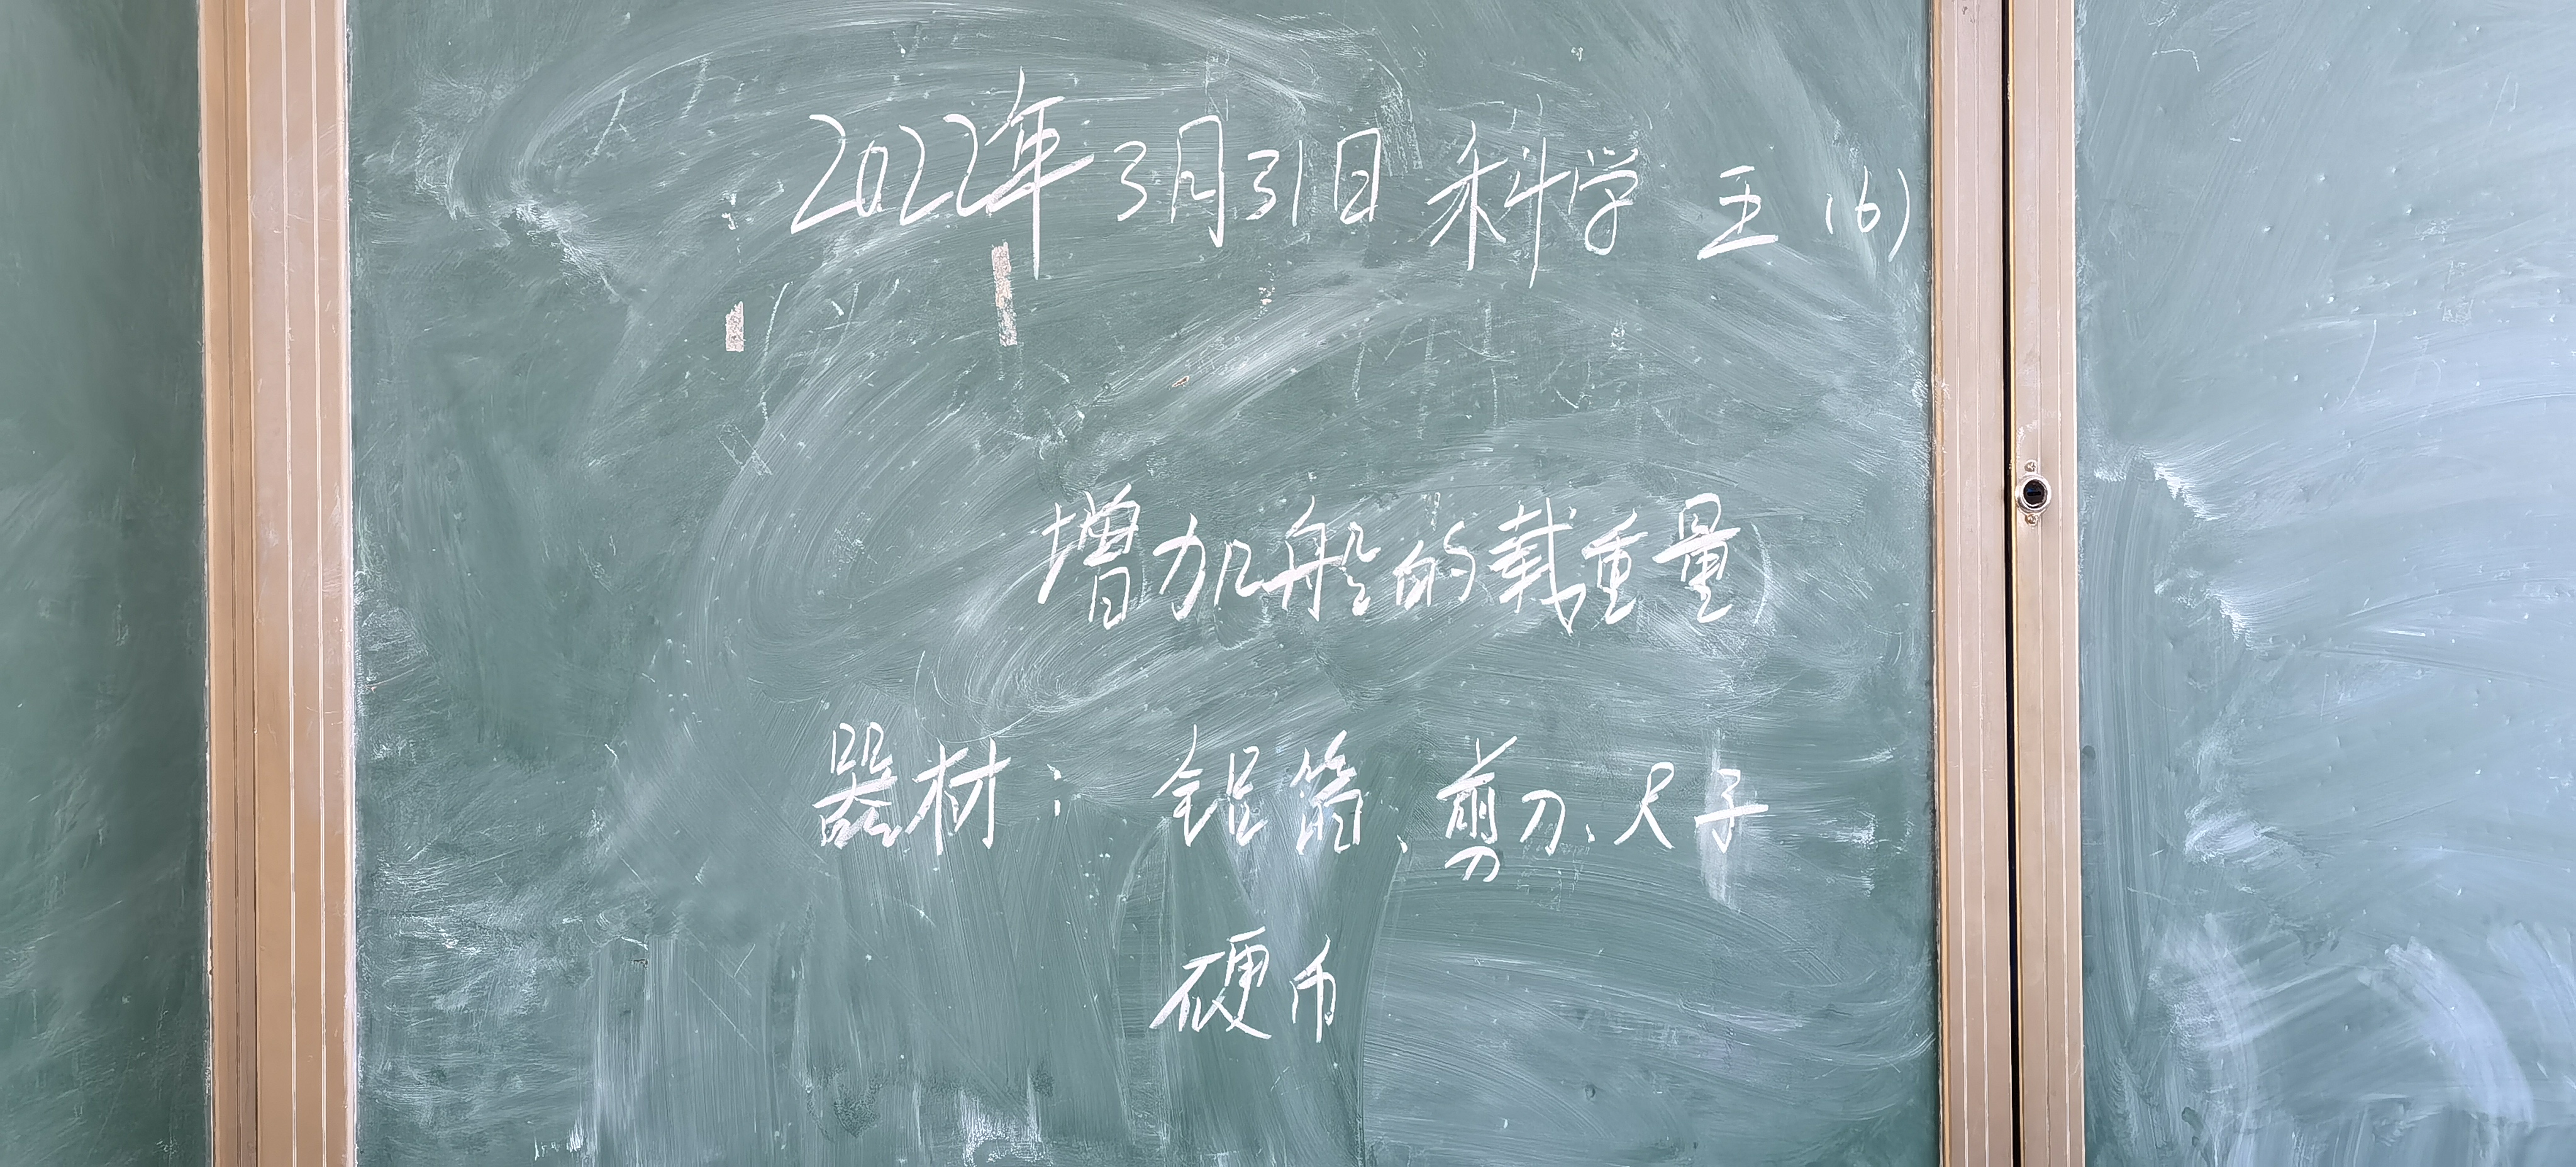 2022年3月31日 科学 王(6)
增加船的载重量
器材：铝箔、剪刀、尺子
硬币